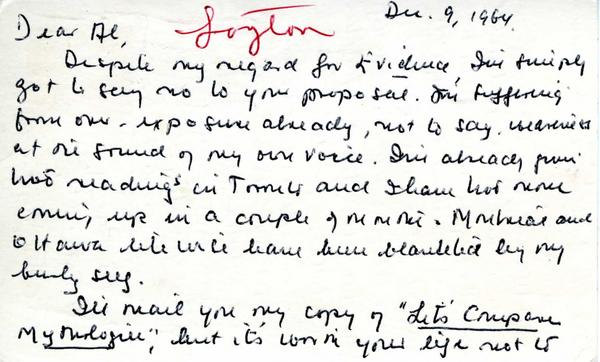 Dec. 9, 1964.
Dear Al, Layton
Despite my regard for Evidence, I'm simply
got to say no to your proposal. I'm suffering
from over-exposure already, not to say, weariness
at the sound of my own voice. I've already given
two readings in Toronto and I have two more
coming up in a couple of months. Montreal and
Ottawa likewise have been blanketed by my
burly
I'll mail you my copy of "Let's Compare
Mythologies", but it's worth your life not to